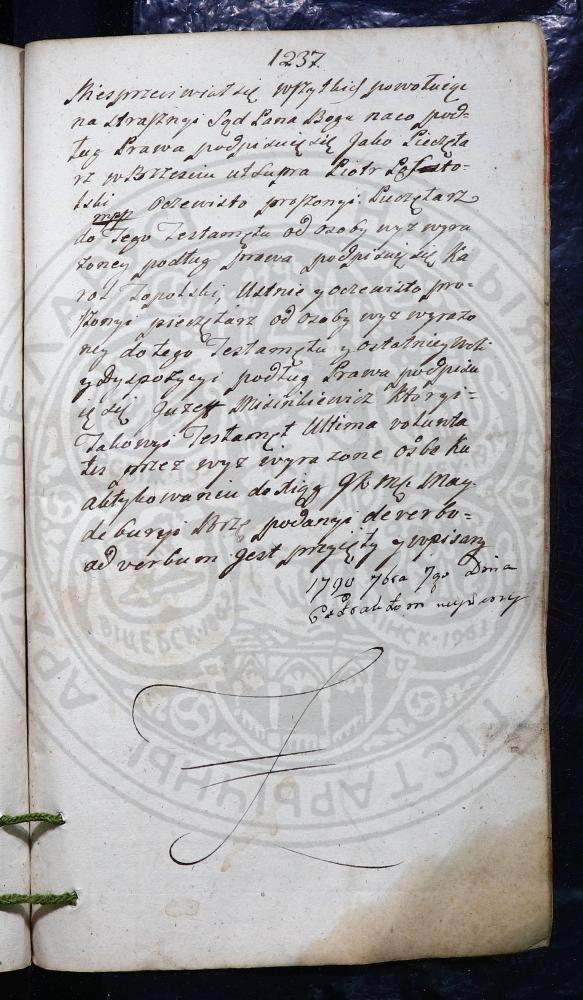 1237
Niesprzeciwiał się wszytkich powołuię
na Straszny Sąd Pana Boga na co pod=
ług Prawa podpisuię się Jako Pieczęta
rz w Brzesciu ut supra Piotr
lski mpp Oczewisto proszony Pieczętarz
do Tego Testamętu od osoby wyz wyra
żoney podług prawa podpisuię się Ka
rol Topolski, Ustnie y oczewisto pro=
szonyi pieczętarz od osoby wyz wyrażo
ney do tego Testamętu y ostatniey woli
y dyspozycyi podług Prawa podpisu
ię się Juzeff Misiukiewicz Ktoryi=
Takowyi Testamęt Ultima volunta
tis przez wyz wyrazone osobe ku
aktykowaniu do Xięg May
deburyi Brzę podanyi de verbo=
ad verbum jest przyięty y wpisany
1790 7bra 7go Dnia